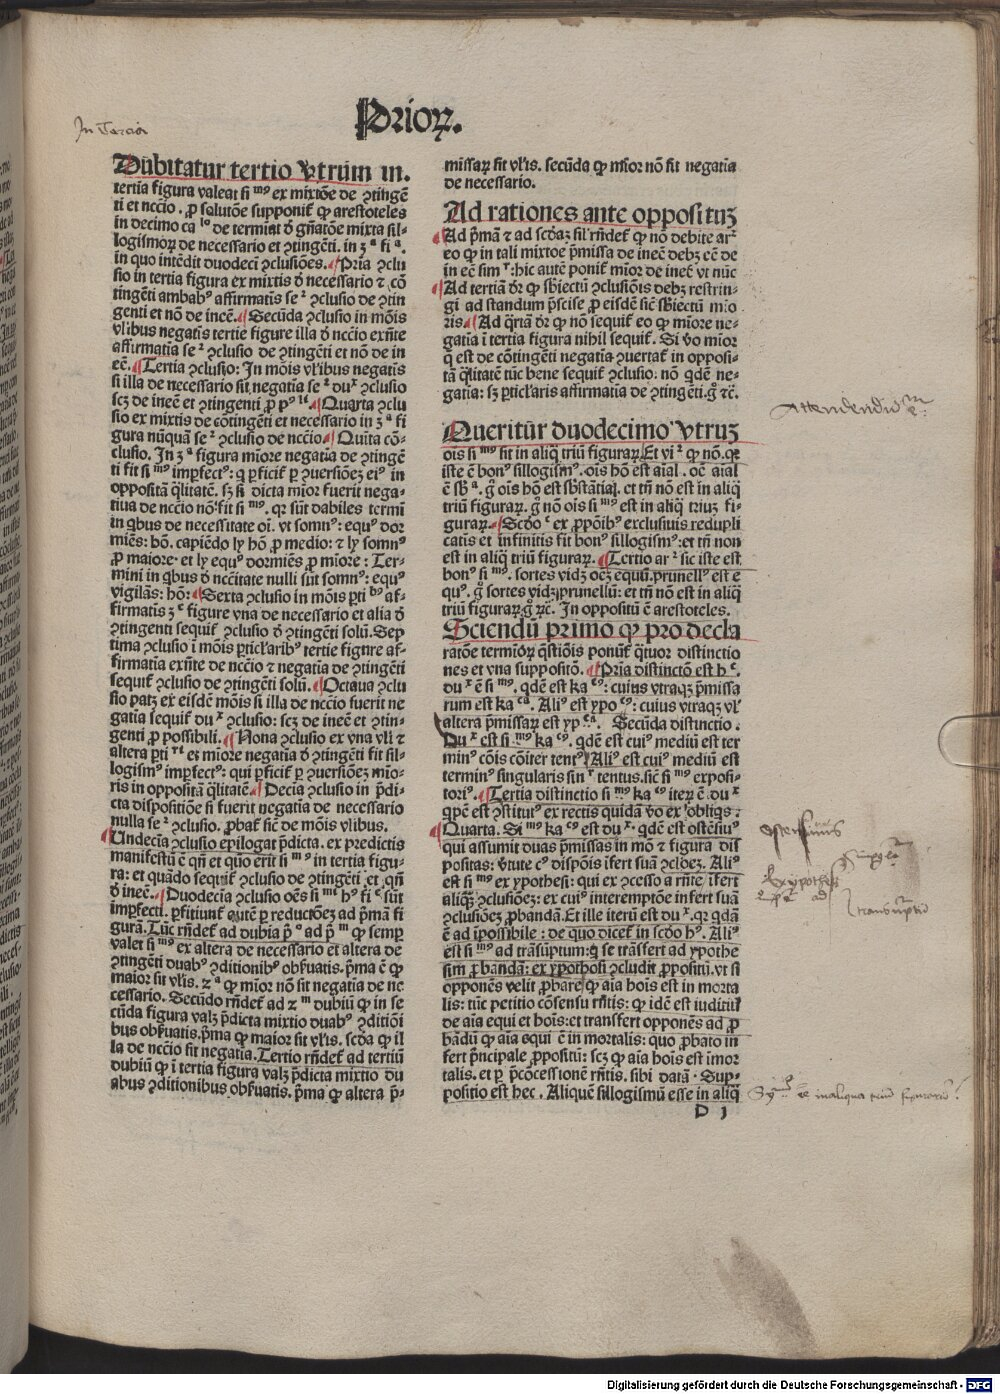 In Tercia
Prioꝝ.
Dūbitatur tertio vtrūm in.
tertia figura valeat si ᵐ⁹ ex mixtōe de ꝯtingē
ti et nccīo. ꝓ solutōe supponit ꝙ arestoteles
in decimo ca ˡᵒ de termiat ꝺ gn̄atōe mixta sil⸗
logismoꝝ de necessario et ꝯtingēti. in ʒ ᵃ fi ᵃ.
in quo intēdit duodecī ꝯclusiōes. Pria ꝯclu
sio in tertia figura ex mixtis ꝺ necessario ⁊ cō
tingēti ambab⁹ affirmatīs se ² ꝯclusio de ꝯtin
genti et nō de inēē. Secūda ꝯclusio in mōis
vl̓ibus negatīs tertie figure illa ꝺ nccīo exn̄te
affirmatīa se ² ꝯclusio de ꝯtingēti et nō de in
eē. Tertia ꝯclusio: In mōis vl̓ibus negatīs
si illa de necessario sit negatīa se ² du ˣ ꝯclusio
scʒ de ineē et ꝯtingenti ꝓ p⁹ ˡᵉ. Quarta ꝯclu
sio ex mixtis de cōtingēti et necessario in ʒ ᵃ fi
gura nūquā se ² ꝯclusio de nccīo. Quīta cō⸗
clusio. In ʒ ᵃ figura miore negatīa de ꝯtingē
ti fit si ᵐ⁹ imꝑfect⁹: q ꝑficit ꝑ ꝯuersiōeʒ ei⁹ in
oppositā q̄litatē. sʒ si dicta mīor fuerit nega⸗
tiua de nccīo nō fit si ᵐ⁹. qꝛ sūt dabiles termī
in qbus de necessitate oī. vt somn⁹: equ⁹ dor
miēs: hō. capiēdo ly hō ꝓ medio: ⁊ ly somn⁹
ꝓ maiore et ly equ⁹ dormiēs ꝓ miore: Ter⸗
mini in qbus ꝺ nccītate nulli sūt somn⁹: equ⁹
vigilās: hō: Sexta ꝯclusio in mōis ꝑti ᵇ⁹ af⸗
firmatīs ʒ ᵉ figure vna de necessario et alia ꝺ
ꝯtingenti sequit ꝯclusio ꝺ ꝯtingēti solū. Sep
tima ꝯclusio ī mōis ꝑticl̓arib⁹ tertie figure af⸗
firmatīa exn̄te de nccīo ⁊ negatīa de ꝯtingēti
sequit ꝯclusio de ꝯtingēti solū. Octaua ꝯclu
sio patʒ ex eisdē mōis si illa de nccīo fuerit ne
gatīa sequit du ˣ ꝯclusio: scʒ de ineē et ꝯtin⸗
genti ꝓ possibili. Nona ꝯclusio ex vna vl̓i ⁊
altera ꝑti ʳⁱ ex miore negatīa ꝺ ꝯtingēti fit sil⸗
logism⁹ imꝑfect⁹: qui ꝑficit ꝑ ꝯuersiōeʒ mīo⸗
ris in oppositā q̄litatē. Decīa ꝯclusio in p̄di⸗
cta dispositiōe si fuerit negatīa de necessario
nulla se ² ꝯclusio. ꝓbat sic de mōis vl̓ibus.
Undecīa ꝯclusio epilogat p̄dicta. ex predictis
manifestū ē qn̄ et quō erit si ᵐ⁹ in tertia figu⸗
ra: et quādo sequit ꝯclusio de ꝯtingēti et qn̄
ꝺ ineē. Duodecīa ꝯclusio oēs si ᵐⁱ h⁹ fi ᵉ sūt
imꝑfecti. ꝑficiunt autē ꝑ reductiōeʒ ad p̄mā fi
gurā. Tūc rn̄det ad dubia p̄ ᵒ ad p̄ ᵐ ꝙ semꝑ
valet si ᵐ⁹ ex altera de necessario et altera de
ꝯtingēti duab⁹ ꝯditionib⁹ obẜuatis. p̄ma ē ꝙ
maior sit vl̓is. ⁊ ᵃ ꝙ mīor nō sit negatīa de ne
cessario. Secūdo rn̄det ad ⁊ ᵐ dubiū ꝙ in se
cūda figura valʒ p̄dicta mixtio duab⁹ ꝯditiōi
bus obẜuatis. p̄ma ꝙ maior sit vl̓is. scd̄a ꝙ il
la de nccīo sit negatīa. Tertio rn̄det ad tertiū
dubiū ꝙ ī tertia figura valʒ p̄dicta mixtio du
abus ꝯditionibus obẜuatis. p̄ma ꝙ altera p̄⸗
missaꝝ sit vl̓is. secūda ꝙ mīor nō sit negatīa
de necessario.
Ad rationes ante oppositūʒ
Ad p̄mā ⁊ ad scd̄aʒ sil̓ rn̄det ꝙ nō debite ar ²
eo ꝙ in tali mixtōe p̄missa de ineē debʒ eē de
in eē sim ʳ: hic autē ponit mīor de ineē vt nūc
Ad tertiā ꝺꝛ ꝙ sbiectū ꝯclusiōis debʒ restrin⸗
gi ad standum p̄cise ꝓ eisdē sic sbiectū mīo
ris Ad q̄rtā ꝺꝛ ꝙ nō sequit eo ꝙ mīore ne⸗
gatīa ī tertia figura nihil sequit. Si vo mīor
q̄ est de cōtingēti negatīa ꝯuertat in opposi⸗
tā q̄litatē tūc bene sequit ꝯclusio: nō qdē ne⸗
gatīa: sʒ ꝑticl̓aris affirmatīa de ꝯtingēti. g̊ ⁊c̄.
Attendendū
Queritūr duodecimo vtruʒ
oīs si ᵐ⁹ sit in aliq̄ triū figuraꝝ Et vi ² ꝙ nō. qꝛ
iste ē bon⁹ sillogism⁹. oīs hō est aīal. oē aīal
ē sb̄ ᵃ. g̊ oīs hō est sb̄stātia. et tn̄ nō est in aliq̄
triū figuraꝝ. g̊ nō oīs si ᵐ⁹ est in aliq̄ triuʒ fi⸗
guraꝝ. Scd̄o ᶜ ex ꝓpōib⁹ exclusiuis redupli
catīs et infinitis fit bon⁹ sillogism⁹: et tn̄ non
est in aliq̄ triū figuraꝝ. Tertio ar ² sic iste est
bon⁹ si ᵐ⁹. sortes vidʒ oēʒ equū. prunell⁹ est e
qu⁹. g̊ sortes vidʒ prunellū: et tn̄ nō est in aliq̄
triū figuraꝝ. g̊ ⁊c̄. In oppositū ē arestoteles.
Sciendū primo ꝙ pro decla
ratōe termīoꝝ q̄stiōis ponūt q̄tuor distinctio
nes et vna suppositō. Pria distinctō est h ᵉ.
du ˣ ē si ᵐ⁹. qdē est ka ᶜ⁹: cuius vtraqʒ p̄missa
rum est ka ᶜᵃ. Ali⁹ est ypo ᶜ⁹: cuius vtraqʒ vl̓
altera p̄missaꝝ est yp ᶜᵃ. Secūda distinctio.
Du ˣ est si ᵐ⁹ ka ᶜ⁹. qdē est cui⁹ mediū est ter
min⁹ cōis cōiter tent⁹ Ali⁹ est cui⁹ mediū est
termin⁹ singularis sin ʳ tentus. sic si ᵐ⁹ exposi⸗
tori⁹. Tertia distinctio si ᵐ⁹ ka ᶜ⁹ iteꝝ ē du ˣ
qp̄e est ꝯstitut⁹ ex rectis quidā vo ex obliqs:
Quarta. Si ᵐ⁹ ka ᶜ⁹ est du ˣ. qdē est ostēsiu⁹
qui assumit duas p̄missas in mō ⁊ figura dis
positas: v̓tute c⁹ dispōis īfert suā ꝯclōeʒ. Ali⁹
est si ᵐ⁹ ex ypothesi: qui ex ꝯcesso a rn̄te īfert
aliqʒ ꝯclusiōeʒ: ex cui⁹ interemptōe infert suā
ꝯclusiōeʒ ꝓbandā. Et ille iterū est du ˣ. qꝛ qdā
ē ad īpossibile: de quo dicet in scd̄o h⁹. Ali⁹
est si ᵐ⁹ ad trāsūptum: q se trāsfert ad ypothe
sim ꝓbandā: ex ypothosi ꝯcludit ꝓpositū. vt si
opponēs velit ꝓbare ꝙ aīa hoīs est in morta
lis: tūc petitio cōsensu rn̄tis: ꝙ idē est iuditiū
de aīa equi et hoīs: et transfert opponēs ad ꝓ
bādū ꝙ aīa equi ē in mortalis: quo ꝓbato in
fert p̄ncipale ꝓpositū: scʒ ꝙ aīa hoīs est īmor
talis. et ꝑ p̄cōcessionē rn̄tis. sibi datā. Sup⸗
positio est hec. Aliquē sillogismū esse in aliq̄
D 1
ostensiuus
Ex ypothesi
transumptiū
Digitalisierung gefördert durch die Deutsche Forschungsgemeinschaft - DFG